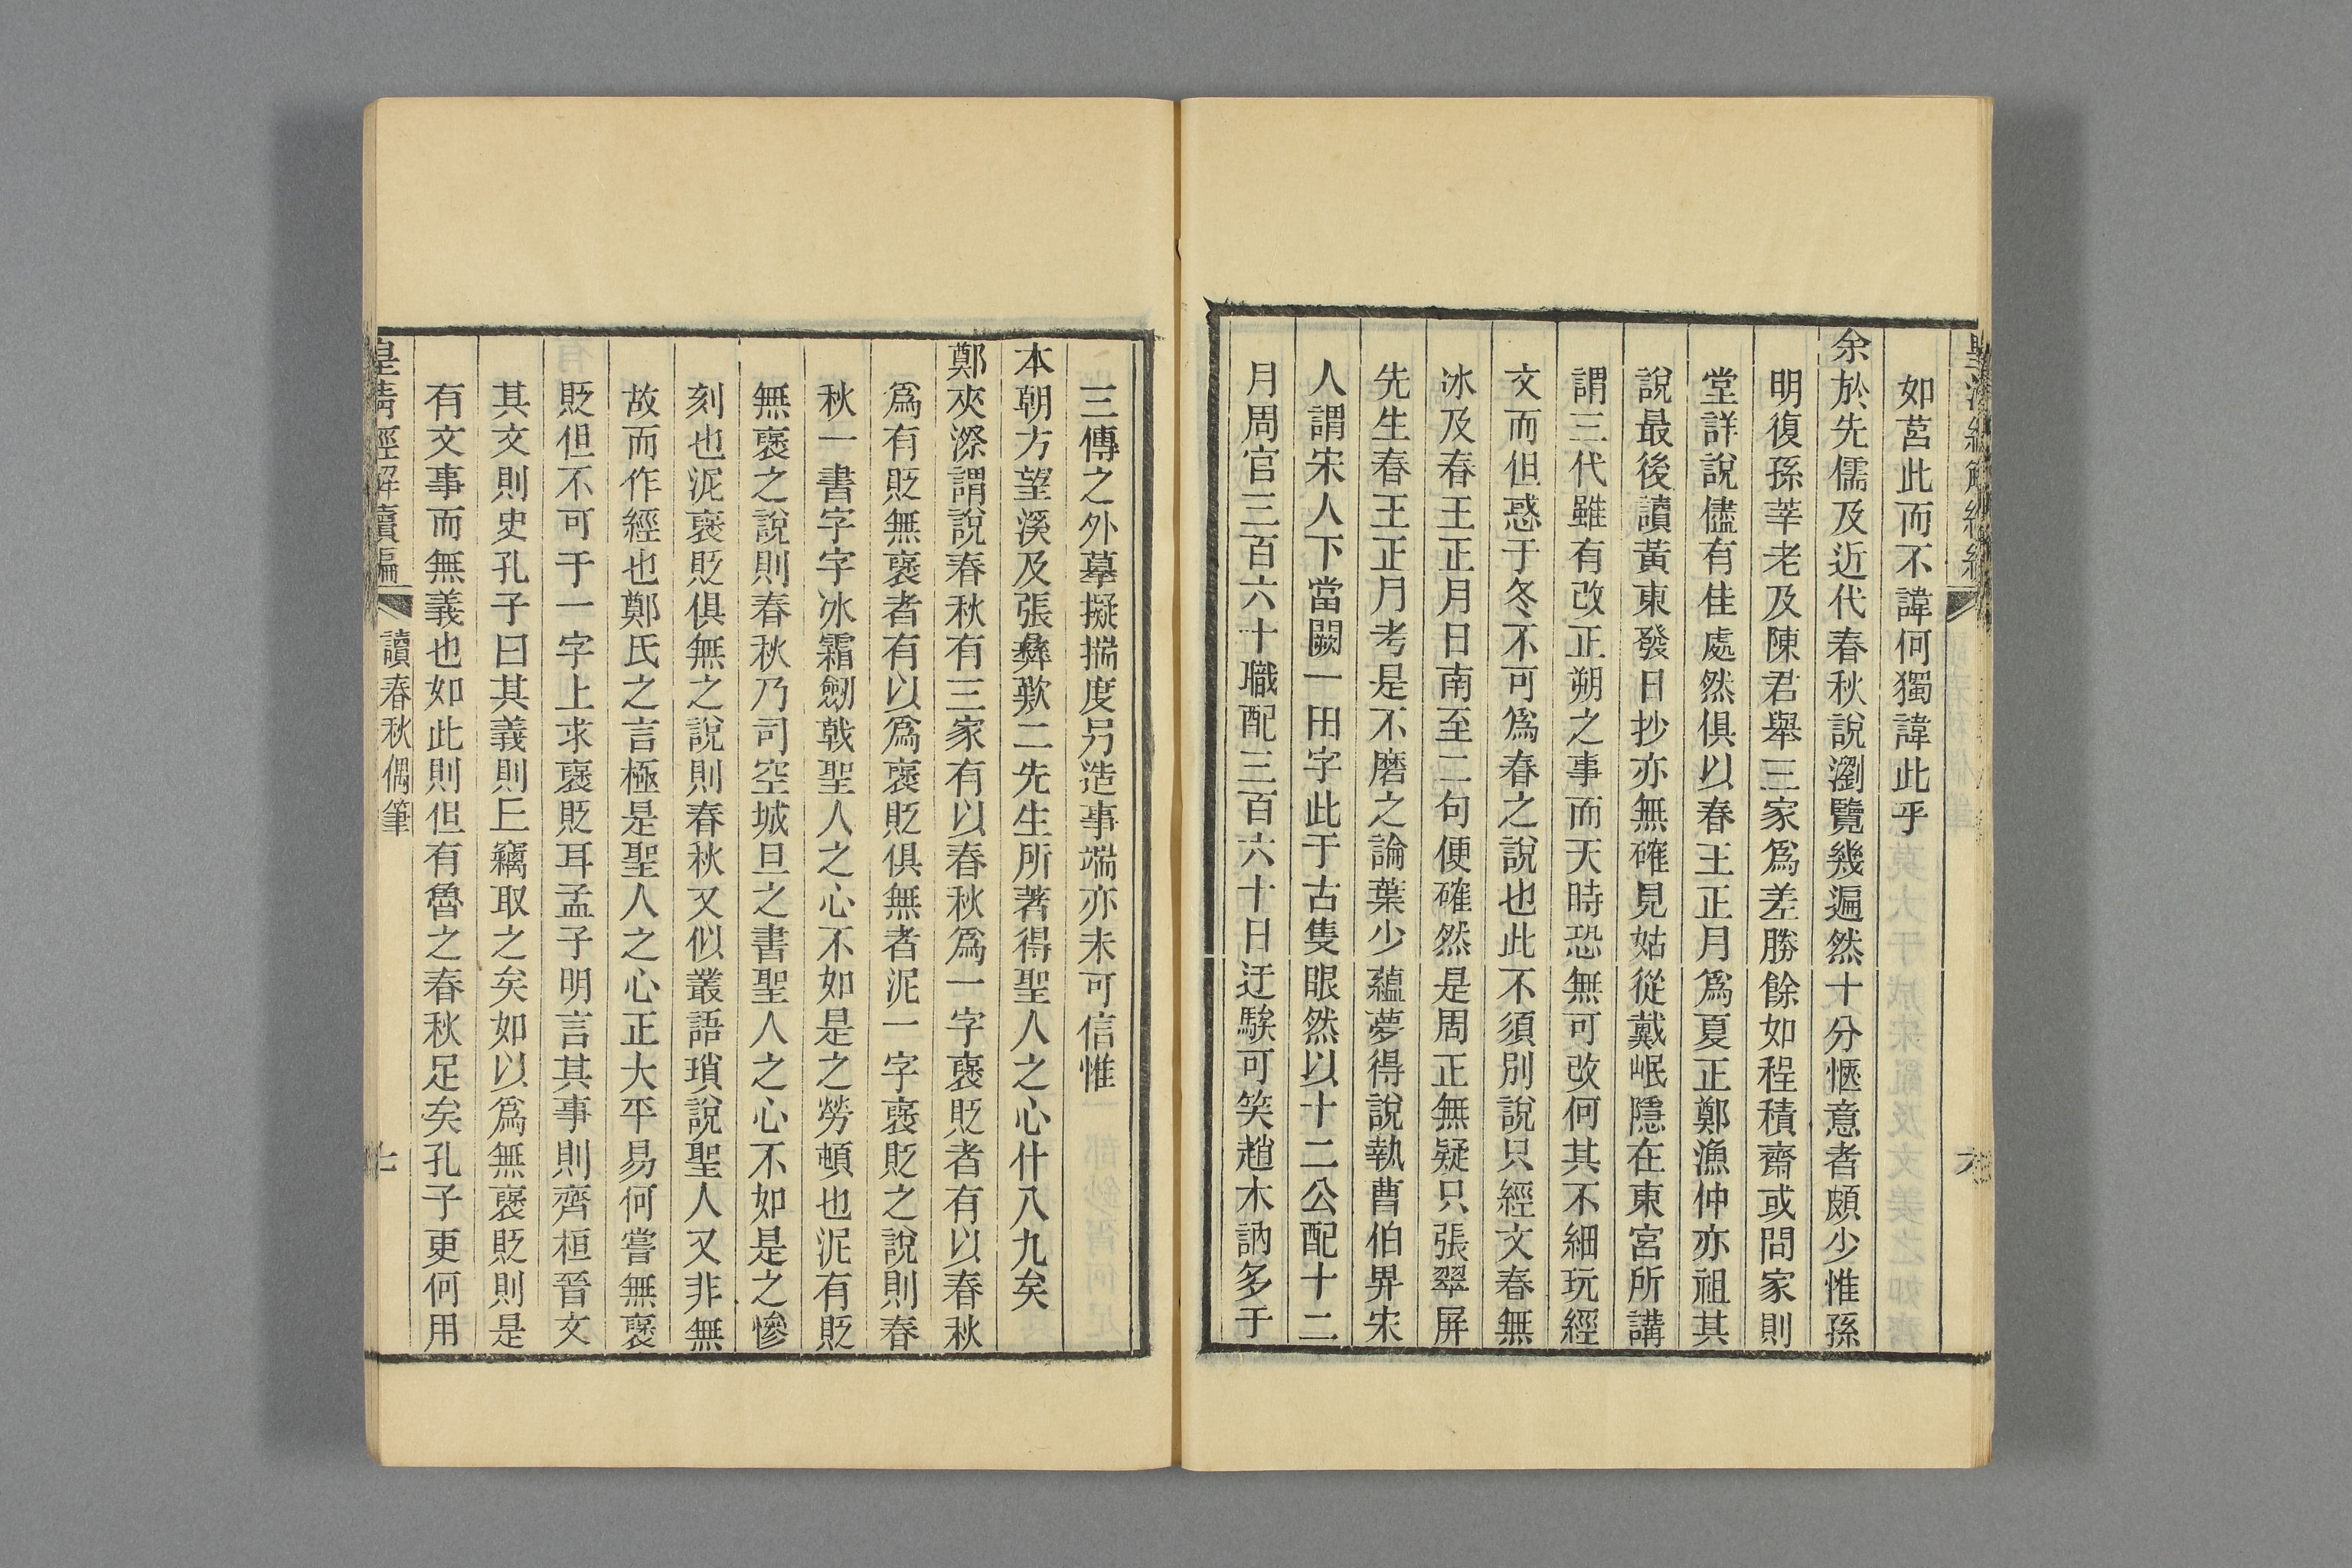 如莒此而不諱何獨諱此乎
余於先儒及近代春秋說瀏覽幾遍然十分愜意者頗少惟孫
明復孫莘老及陳君舉三家爲差勝餘如程積齋或問家則
堂詳說儘有佳處然俱以春王正月爲夏正鄭漁仲亦祖其
說最後讀黃東發日抄亦無確見姑從戴岷隱在東宮所講
謂三代雖有改正朔之事而天時恐無可改何其不細玩經
文而但惑于冬不可爲春之說也此不須別說只經文春無
冰及春王正月日南至二句便確然是周正無疑只張翠屏
先生春王正月考是不磨之論葉少蘊夢得說執曹伯畀宋
人謂宋人下當闕一田字此于古隻眼然以十二公配十二
月周官三百六十職配三百六十日迂騃可笑趙木訥多于
三傳之外摹擬揣度另造事端亦未可信惟
本朝方望溪及張彝歎二先生所著得聖人之心什八九矣
鄭夾漈謂說春秋有三家有以春秋爲一字褒貶者有以春秋
爲有貶無褒者有以爲褒貶俱無者泥一字褒貶之說則春
秋一書字字冰霜劒戟聖人之心不如是之勞頓也泥有貶
無褒之說則春秋乃司空城旦之書聖人之心不如是之慘
刻也泥褒貶俱無之說則春秋又似叢語瑣說聖人又非無
故而作經也鄭氏之言極是聖人之心正大平易何嘗無褒
貶但不可于一字上求褒貶耳孟子明言其事則齊桓晉文
其文則史孔子曰其義則丘竊取之矣如以爲無褒貶則是
有文事而無義也如此則但有魯之春秋足矣孔子更何用
皇清經解續編 讀春秋偶筆 七